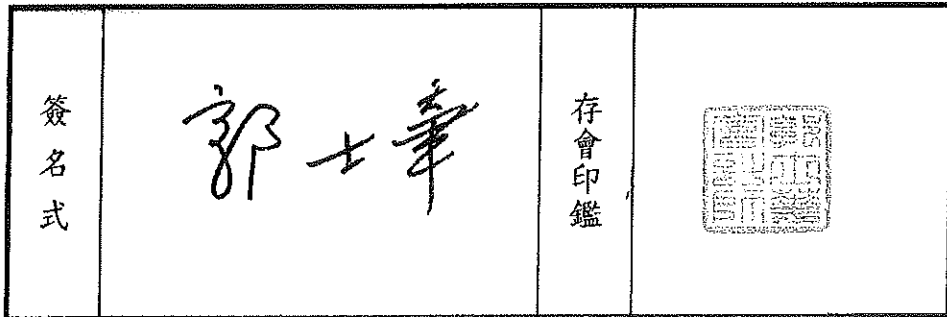 簽名式
郭士華
存會印鑑